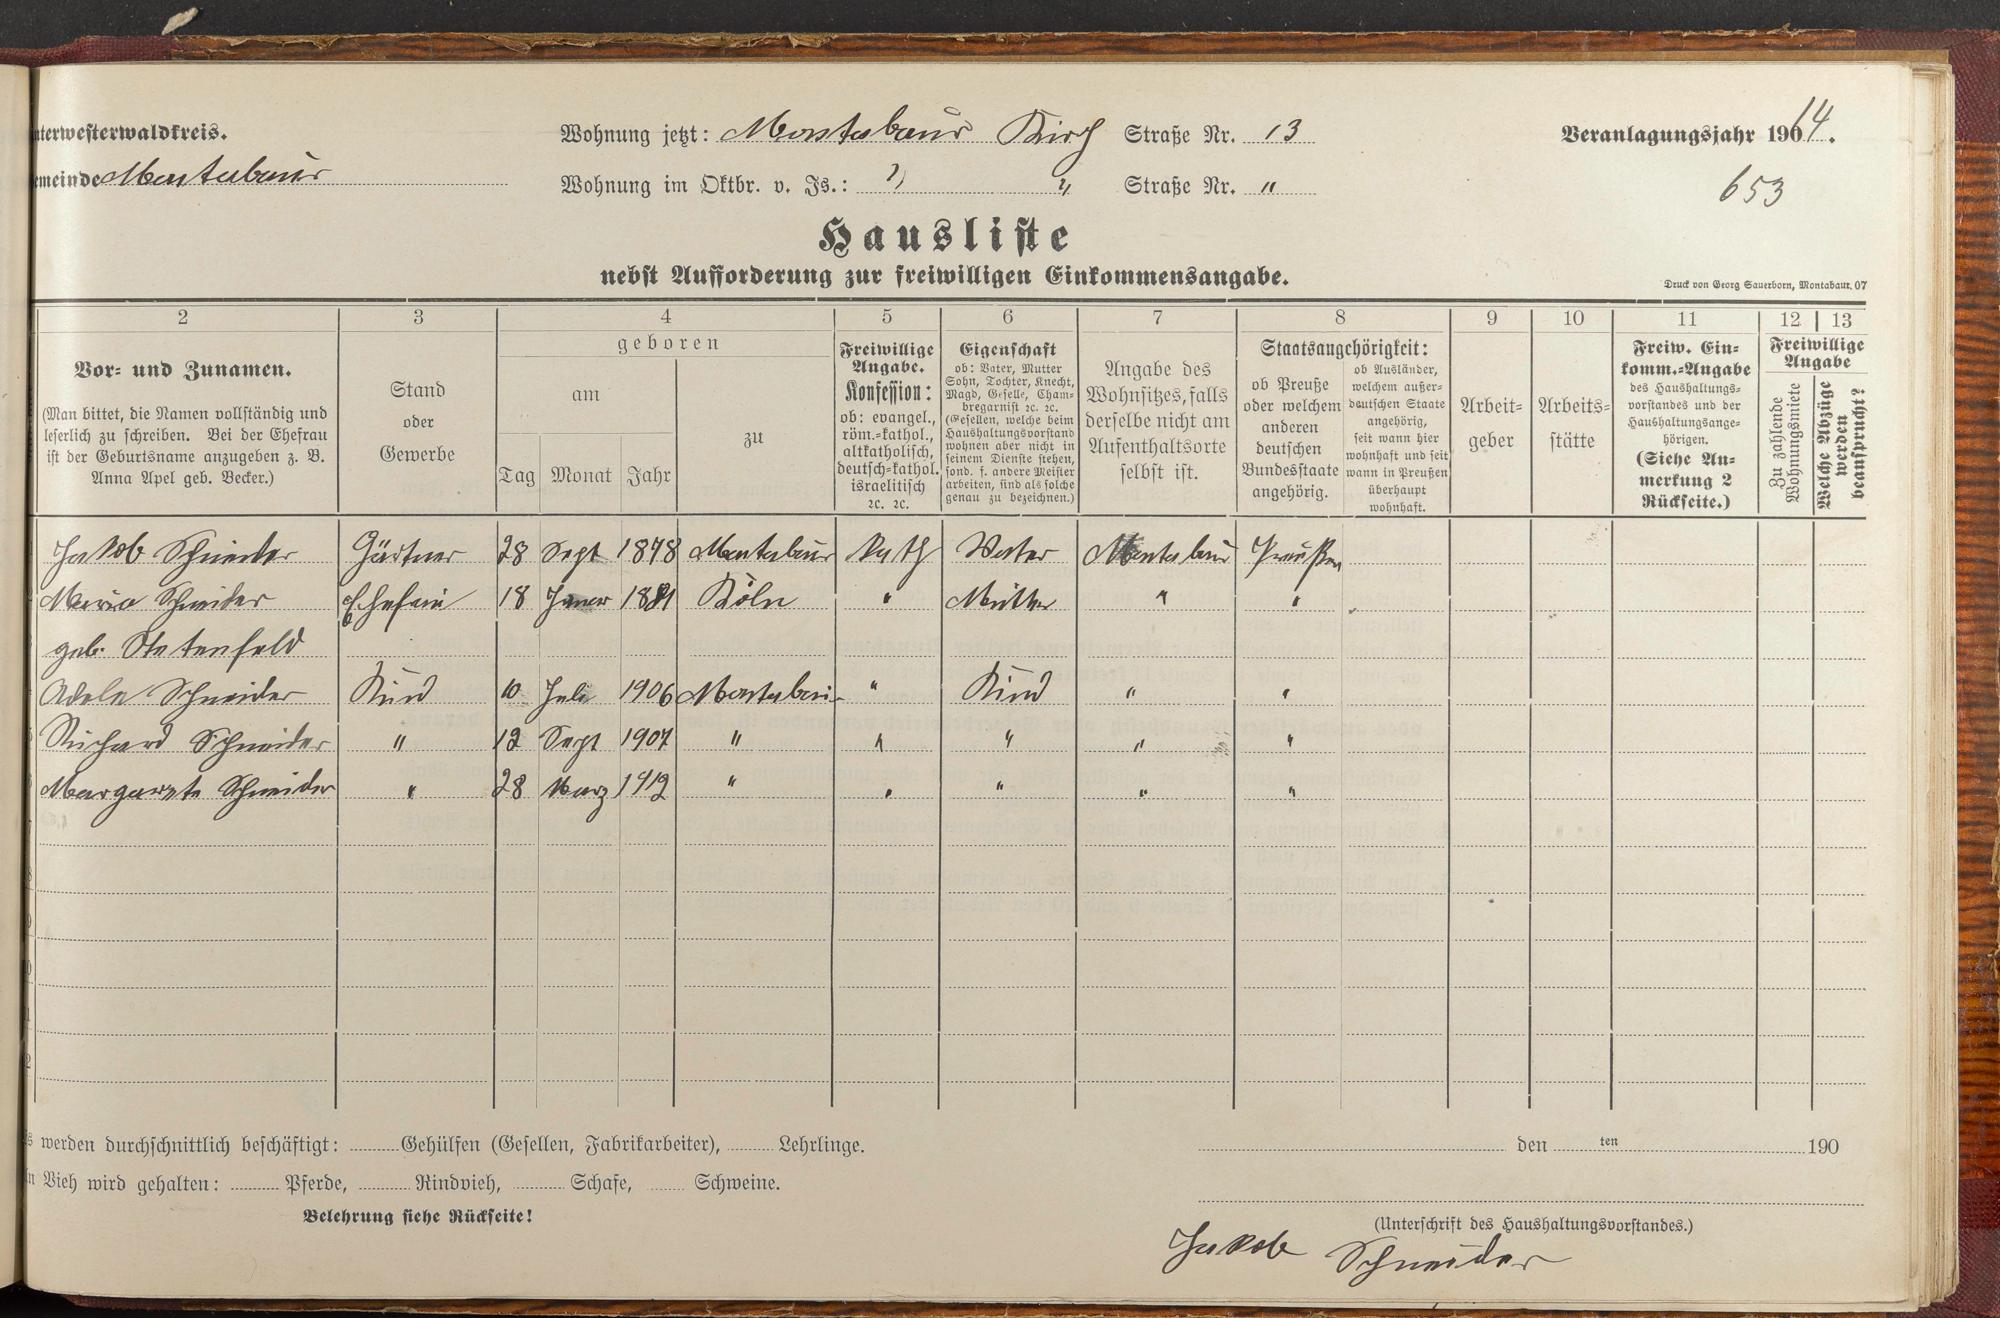 nterwesterwaldkreis.
Wohnung jetzt: Montabaur Kirch Straße Nr. 13
Veranlagungsjahr 190 14.
emeinde Montabaur
Wohnung im Oktbr. v. Js.: " " Straße Nr. "
653
Hausliste
nebst Aufforderung zur freiwilligen Einkommensangabe.
Druck von Georg Sauerborn, Montabaur. 07
2 3 4 5 6 7 8 9 10 11 12 13
Vor- und Zunamen.
(Man bittet, die Namen vollständig und
leserlich zu schreiben. Bei der Ehefrau
ist der Geburtsname anzugeben z. B.
Anna Apel geb. Becker.)
Stand
oder
Gewerbe
geboren
am
Tag Monat Jahr
zu
Freiwillige
Angabe.
Konfession:
ob: evangel.,
röm.-kathol.,
altkatholisch,
deutsch-kathol.
israelitisch
ꝛc. ꝛc.
Eigenschaft
ob: Vater, Mutter
Sohn, Tochter, Knecht,
Magd, Geselle, Cham-
bregarnist ꝛc. ꝛc.
(Gesellen, welche beim
Haushaltungsvorstand
wohnen aber nicht in
seinem Dienste stehen,
sond. f. andere Meister
arbeiten, sind als solche
genau zu bezeichnen.)
Angabe des
Wohnsitzes, falls
derselbe nicht am
Aufenthaltsorte
selbst ist.
Staatsangehörigkeit:
ob Preuße
oder welchem
anderen
deutschen
Bundesstaate
angehörig.
ob Ausländer,
welchem außer-
deutschen Staate
angehörig,
seit wann hier
wohnhaft und seit
wann in Preußen
überhaupt
wohnhaft.
Arbeit-
geber
Arbeits-
stätte
Freiw. Ein-
komm.-Angabe
des Haushaltungs-
vorstandes und der
Haushaltungsange-
hörigen.
(Siehe An-
merkung 2
Rückseite.)
Freiwillige
Angabe
Zu zahlende
Wohnungsmiete
Welche Abzüge
werden
beansprucht?
Jakob Schneider Gärtner 28 Sept 1878 Montabaur Kath Vater Montabaur Preußen
Maria Schneider Ehefrau 18 Januar 1881 Köln " Mutter " "
geb. Statenfeld
Adele Schneider Kind 10 Juli 1906 Montabaur " Kind " "
Richard Schneider " 12 Sept 1907 " " " " "
Margarete Schneider " 28 März 1912 " " " " "
7
8
9
10
11
12
s werden durchschnittlich beschäftigt: Gehülfen (Gesellen, Fabrikarbeiter), Lehrlinge.
den ten 190
n Vieh wird gehalten: Pferde, Rindvieh, Schafe, Schweine.
Belehrung siehe Rückseite!
(Unterschrift des Haushaltungsvorstandes.)
Jakob Schneider